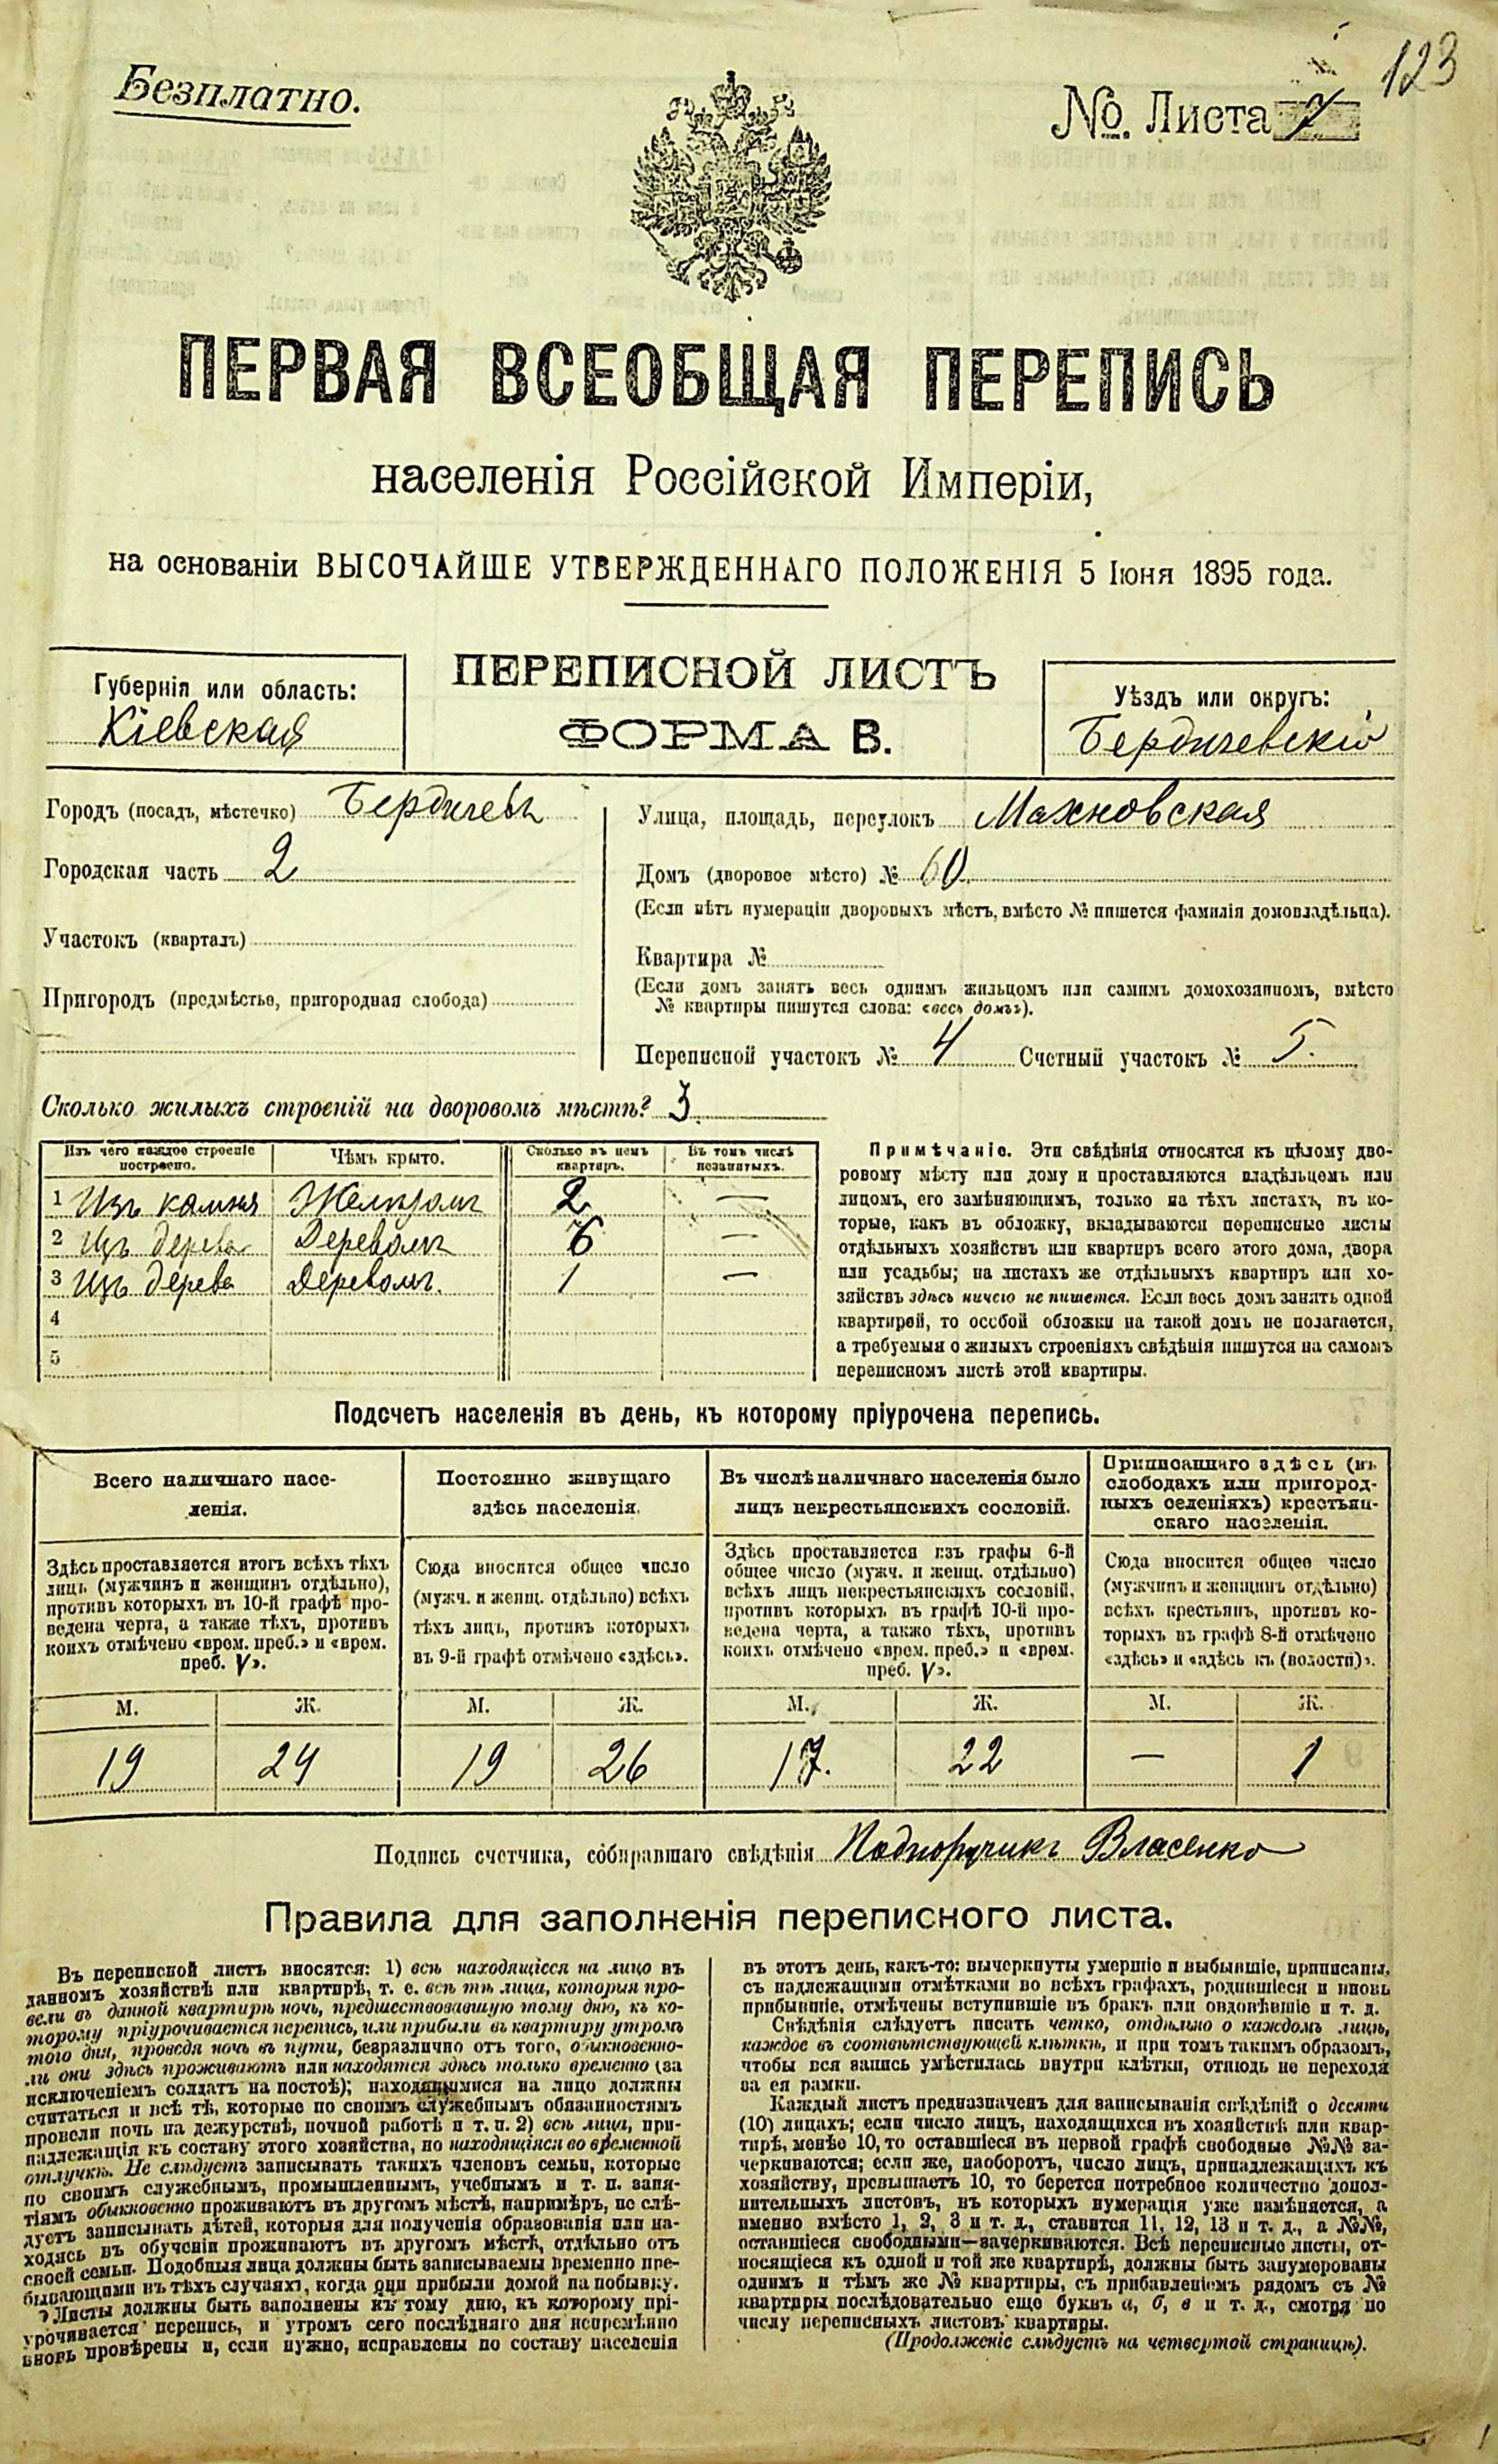 123
Безплатно.
№. Листа 7
ПЕРВАЯ ВСЕОБЩАЯ ПЕРЕПИСЬ
населенія Россійской Имперіи,
на основаніи ВЫСОЧАЙШЕ УТВЕРЖДЕННАГО ПОЛОЖЕНІЯ 5 Іюня 1895 года.
ПЕРЕПИСНОЙ ЛИСТЪ
ФОРМА В.
Губернія или область:
Кіевская
Уѣздъ или округъ:
Бердичевскій
Городъ (посадъ, мѣстечко) Бердичевъ
Городская часть 2
Участокъ (кварталъ)
Пригородъ (предмѣстье, пригородная слобода)
Улица, площадь, переулокъ Махновская
Домъ (дворовое мѣсто) № 60
(Если нѣтъ нумераціи дворовыхъ мѣстъ, вмѣсто № пишется фамилія домовладѣльца).
Квартира №
(Если домъ занятъ весь однимъ жильцомъ или самимъ домохозяиномъ, вмѣсто
№ квартиры пишутся слова: «весь домъ»).
Переписной участокъ № 4 Счетный участокъ № 5.
Сколько жилыхъ строеній на дворовомъ мѣстѣ? 3
Изъ чего каждое строеніе построено. Чѣмъ крыто. Сколько въ немъ квартиръ. Въ томъ числѣ незанятыхъ.
1 Изъ камня Желѣзомъ 2 —
2 Изъ дерева Деревомъ 6 —
3 Изъ дерева Деревомъ. 1 —
4
5
Примѣчаніе. Эти свѣдѣнія относятся къ цѣлому дво-
ровому мѣсту или дому и проставляются владѣльцемъ или
лицомъ, его замѣняющимъ, только на тѣхъ листахъ, въ ко-
торые, какъ въ обложку, вкладываются переписные листы
отдѣльныхъ хозяйствъ или квартиръ всего этого дома, двора
или усадьбы; на листахъ же отдѣльныхъ квартиръ или хо-
зяйствъ здѣсь ничего не пишется. Если весь домъ занятъ одной
квартирой, то особой обложки на такой домъ не полагается,
а требуемыя о жилыхъ строеніяхъ свѣдѣнія пишутся на самомъ
переписномъ листѣ этой квартиры.
Подсчетъ населенія въ день, къ которому пріурочена перепись.
Всего наличнаго насе-
ленія.
Здѣсь проставляется итогъ всѣхъ тѣхъ
лицъ (мужчинъ и женщинъ отдѣльно),
противъ которыхъ въ 10-й графѣ про-
ведена черта, а также тѣхъ, противъ
коихъ отмѣчено «врем. преб.» и «врем.
преб. V».
М. Ж.
19 24
Постоянно живущаго
здѣсь населенія.
Сюда вносится общее число
(мужч. и женщ. отдѣльно) всѣхъ
тѣхъ лицъ, противъ которыхъ
въ 9-й графѣ отмѣчено «здѣсь».
М. Ж.
19 26
Въ числѣ наличнаго населенія было
лицъ некрестьянскихъ сословій.
Здѣсь проставляется изъ графы 6-й
общее число (мужч. и женщ. отдѣльно)
всѣхъ лицъ некрестьянскихъ сословій,
противъ которыхъ въ графѣ 10-й про-
ведена черта, а также тѣхъ, противъ
коихъ отмѣчено «врем. преб.» и «врем.
преб. V».
М. Ж.
17. 22
Приписаннаго здѣсь (въ
слободахъ или пригород-
ныхъ селеніяхъ) крестьян-
скаго населенія.
Сюда вносится общее число
(мужчинъ и женщинъ отдѣльно)
всѣхъ крестьянъ, противъ ко-
торыхъ въ графѣ 8-й отмѣчено
«здѣсь» и «здѣсь къ (волости)».
М. Ж.
— 1
Подпись счетчика, собиравшаго свѣдѣнія Подпоручикъ Власенко
Правила для заполненія переписного листа.
Въ переписной листъ вносятся: 1) всѣ находящіеся на лицо въ
данномъ хозяйствѣ или квартирѣ, т. е. всѣ тѣ лица, которыя про-
вели въ данной квартирѣ ночь, предшествовавшую тому дню, къ ко-
торому пріурочивается перепись, или прибыли въ квартиру утромъ
того дня, проведя ночь въ пути, безразлично отъ того, обыкновенно-
ли они здѣсь проживаютъ или находятся здѣсь только временно (за
исключеніемъ солдатъ на постоѣ); находящимися на лицо должны
считаться и всѣ тѣ, которые по своимъ служебнымъ обязанностямъ
провели ночь на дежурствѣ, ночной работѣ и т. п. 2) всѣ лица, при-
надлежащія къ составу этого хозяйства, но находящіяся во временной
отлучкѣ. Не слѣдуетъ записывать такихъ членовъ семьи, которые
по своимъ служебнымъ, промышленнымъ, учебнымъ и т. п. заня-
тіямъ обыкновенно проживаютъ въ другомъ мѣстѣ, напримѣръ, не слѣ-
дуетъ записывать дѣтей, которыя для полученія образованія или на-
ходясь въ обученіи проживаютъ въ другомъ мѣстѣ, отдѣльно отъ
своей семьи. Подобныя лица должны быть записываемы временно пре-
бывающими въ тѣхъ случаяхъ, когда они прибыли домой на побывку.
Листы должны быть заполнены къ тому дню, къ которому прі-
урочивается перепись, и утромъ сего послѣдняго дня непремѣнно
вновь провѣрены и, если нужно, исправлены по составу населенія
въ этотъ день, какъ-то: вычеркнуты умершіе и выбывшіе, приписаны,
съ надлежащими отмѣтками во всѣхъ графахъ, родившіеся и вновь
прибывшіе, отмѣчены вступившіе въ бракъ или овдовѣвшіе и т. д.
Свѣдѣнія слѣдуетъ писать четко, отдѣльно о каждомъ лицѣ,
каждое въ соотвѣтствующей клѣткѣ, и при томъ такимъ образомъ,
чтобы вся запись умѣстилась внутри клѣтки, отнюдь не переходя
за ея рамки.
Каждый листъ предназначенъ для записыванія свѣдѣній о десяти
(10) лицахъ; если число лицъ, находящихся въ хозяйствѣ или квар-
тирѣ, менѣе 10, то оставшіеся въ первой графѣ свободные №№ за-
черкиваются; если же, наоборотъ, число лицъ, принадлежащихъ къ
хозяйству, превышаетъ 10, то берется потребное количество допол-
нительныхъ листовъ, въ которыхъ нумерація уже измѣняется, а
именно вмѣсто 1, 2, 3 и т. д., ставится 11, 12, 13 и т. д., а №№,
оставшіеся свободными—зачеркиваются. Всѣ переписные листы, от-
носящіеся къ одной и той же квартирѣ, должны быть занумерованы
однимъ и тѣмъ же № квартиры, съ прибавленіемъ рядомъ съ №
квартиры послѣдовательно еще буквъ а, б, в и т. д., смотря по
числу переписныхъ листовъ квартиры.
(Продолженіе слѣдуетъ на четвертой страницѣ).